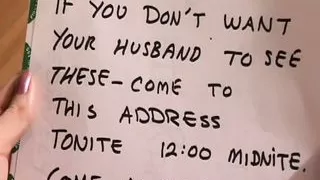 IF YOU DON'T WANT
YOUR HUSBAND TO SEE
THESE - COME TO
THIS ADDRESS
TONITE 12:00 MIDNITE.
COME